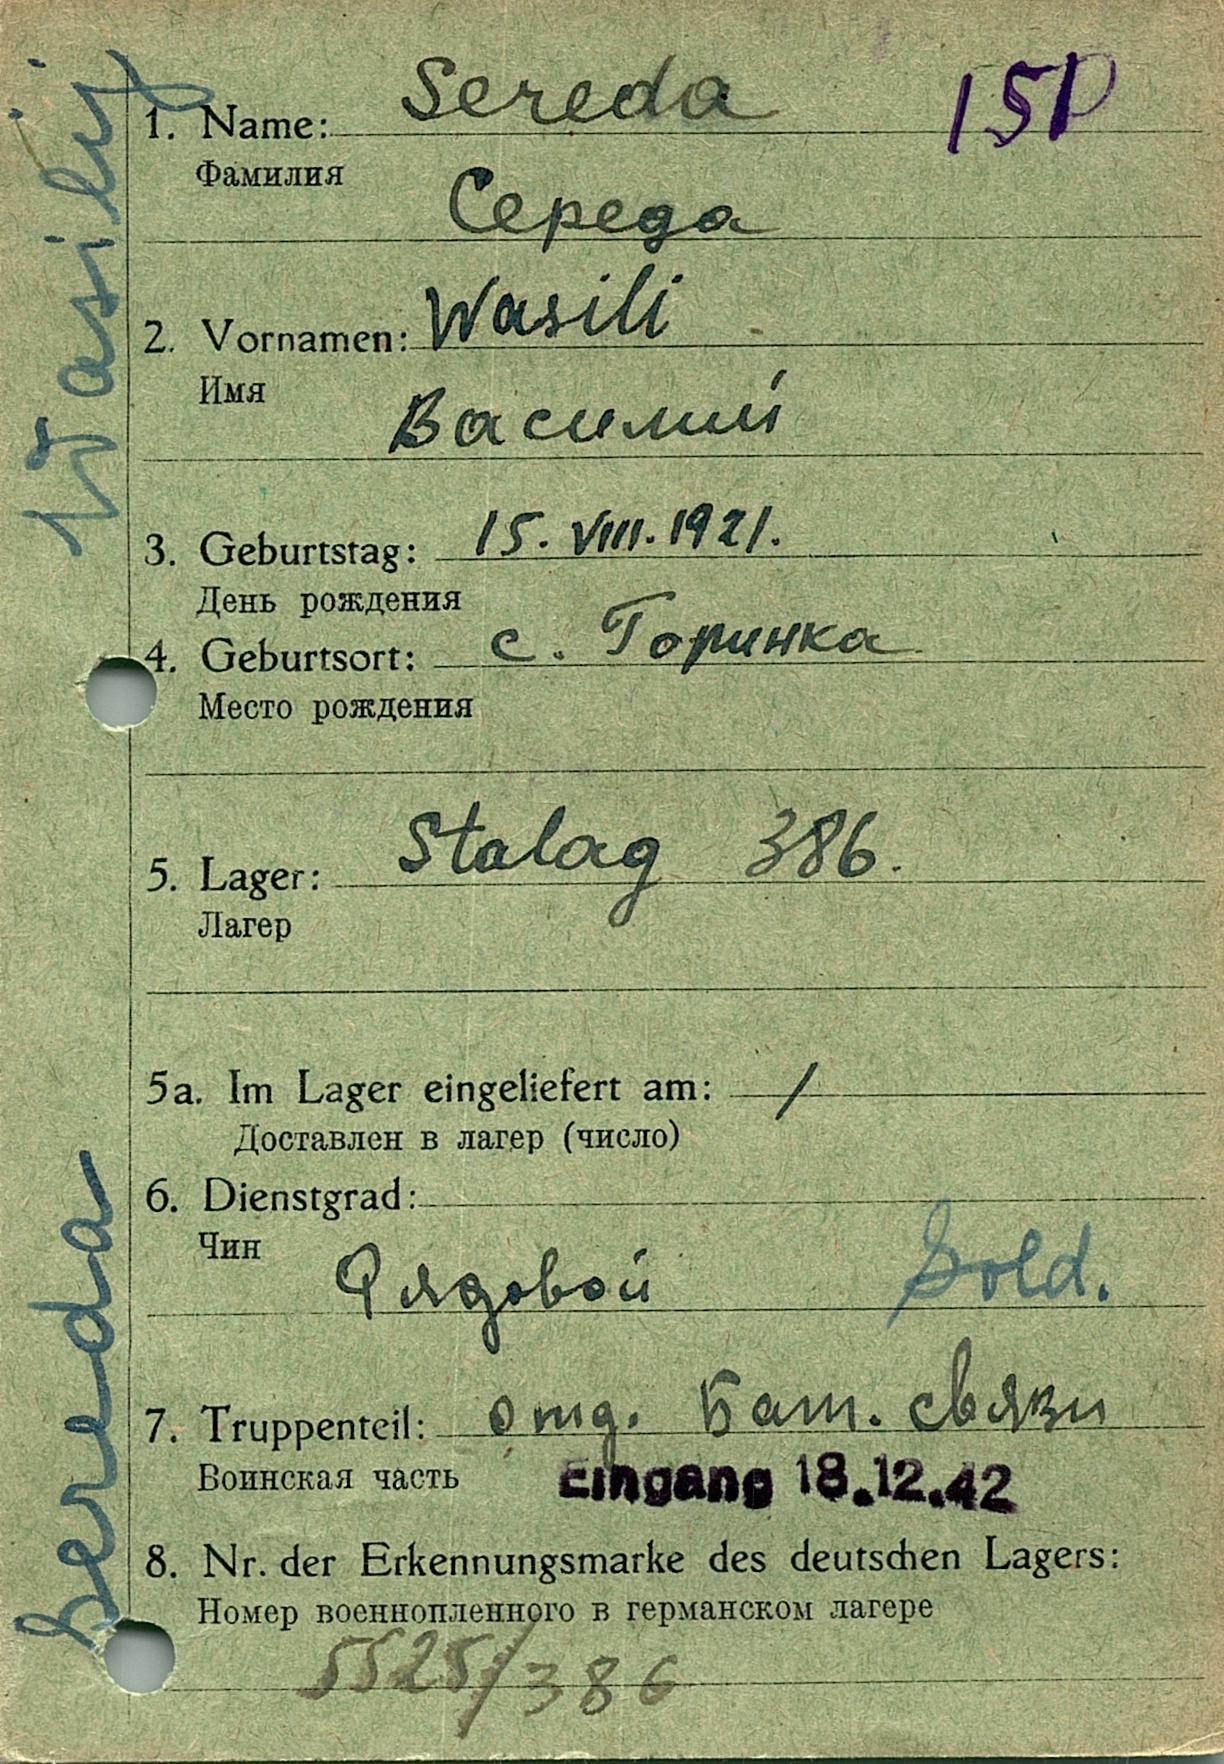 Sereda
151
1. Name:
Фамилия
Середа
2. Vornamen: Wasili
Имя
Василий
3. Geburtstag: 15. VIII. 1921.
День рождения
4. Geburtsort: с. Горинка
Место рождения
5. Lager: Stalag 386.
Лагер
5a. Im Lager eingeliefert am: /
Доставлен в лагер (число)
6. Dienstgrad:
Чин
Рядовой Sold.
7. Truppenteil: отд. Бат. связи
Воинская часть
Eingang 18.12.42
8. Nr. der Erkennungsmarke des deutschen Lagers:
Номер военнопленного в германском лагере
5525/386
Sereda Wasilij